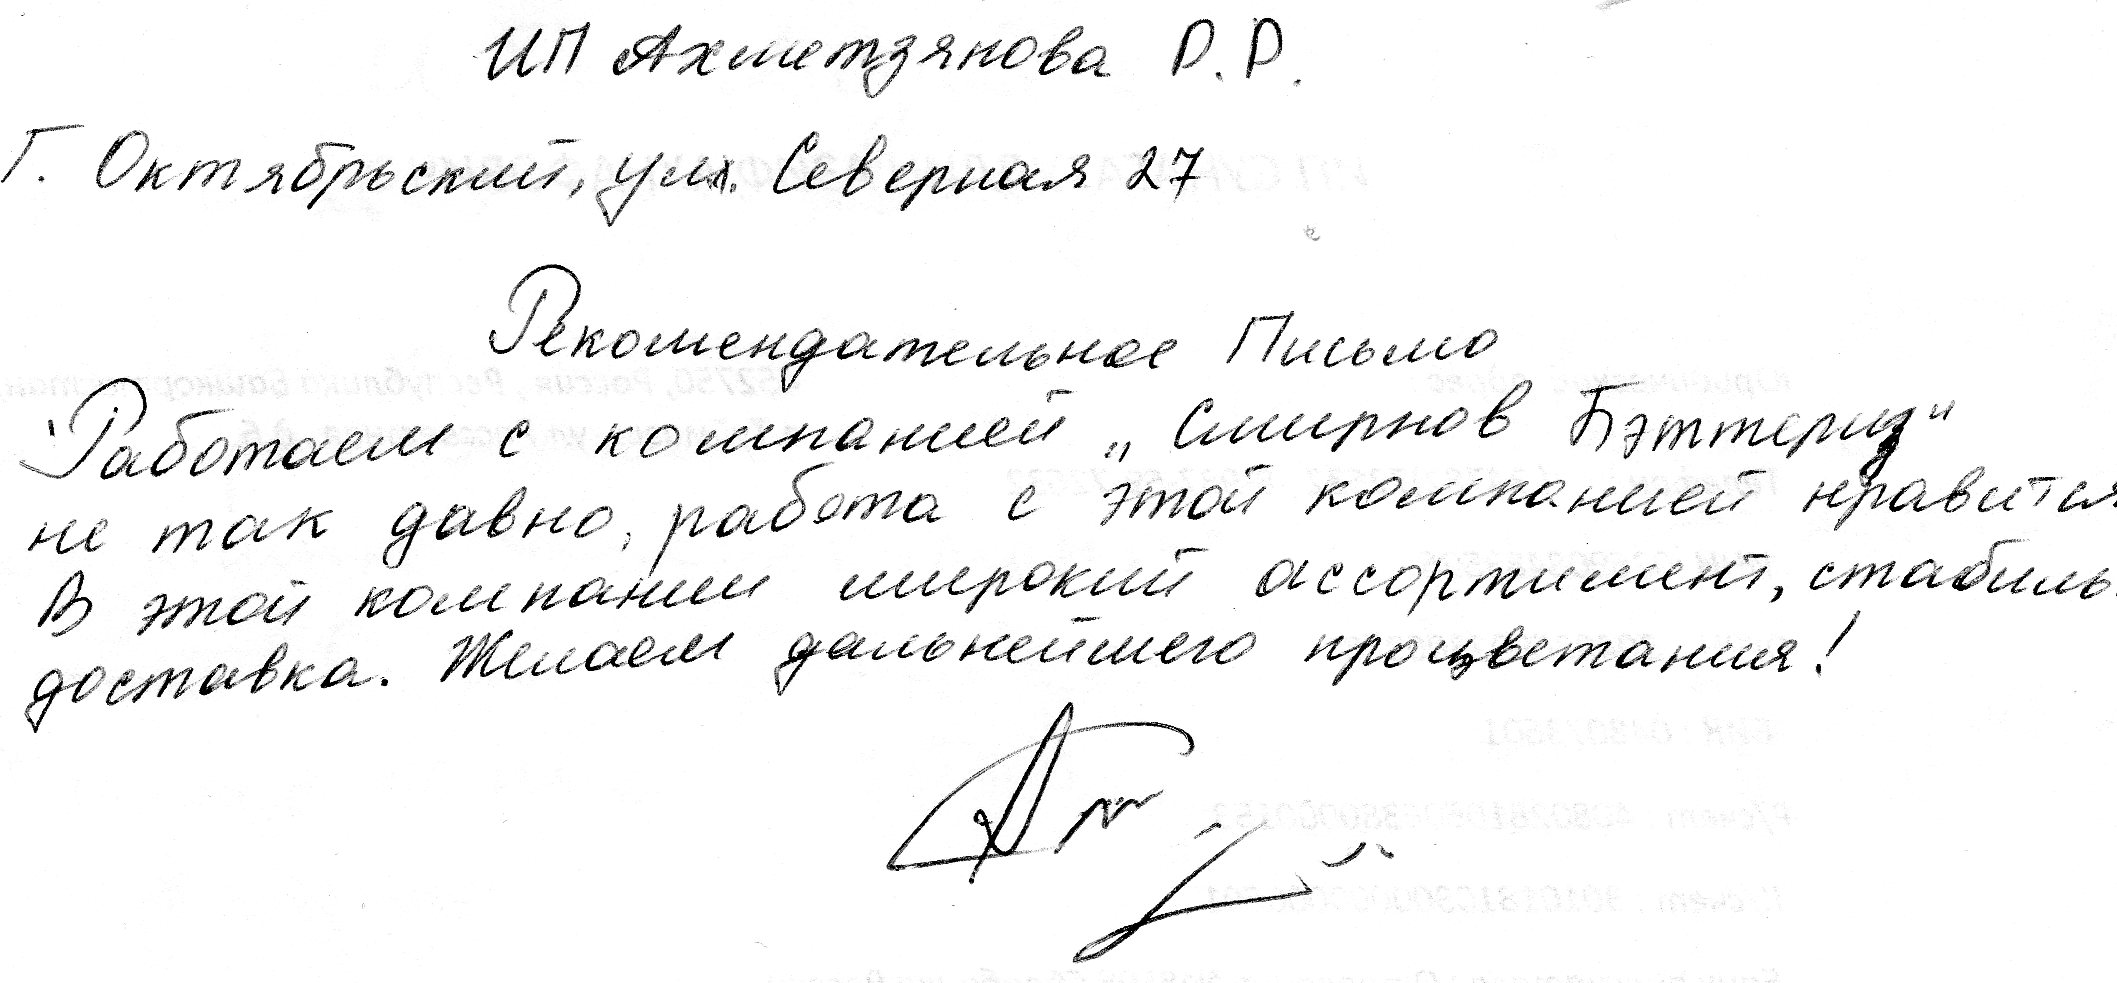 ИП Ахметзянова Р.Р.
Г. Октябрьский, ул. Северная 27
Рекомендательное Письмо
Работаем с компанией „Смирнов Бэттериз“
не так давно, работа с этой компанией нравится
В этой компании широкий ассортимент, стабиль
доставка. Желаем дальнейшего процветания!